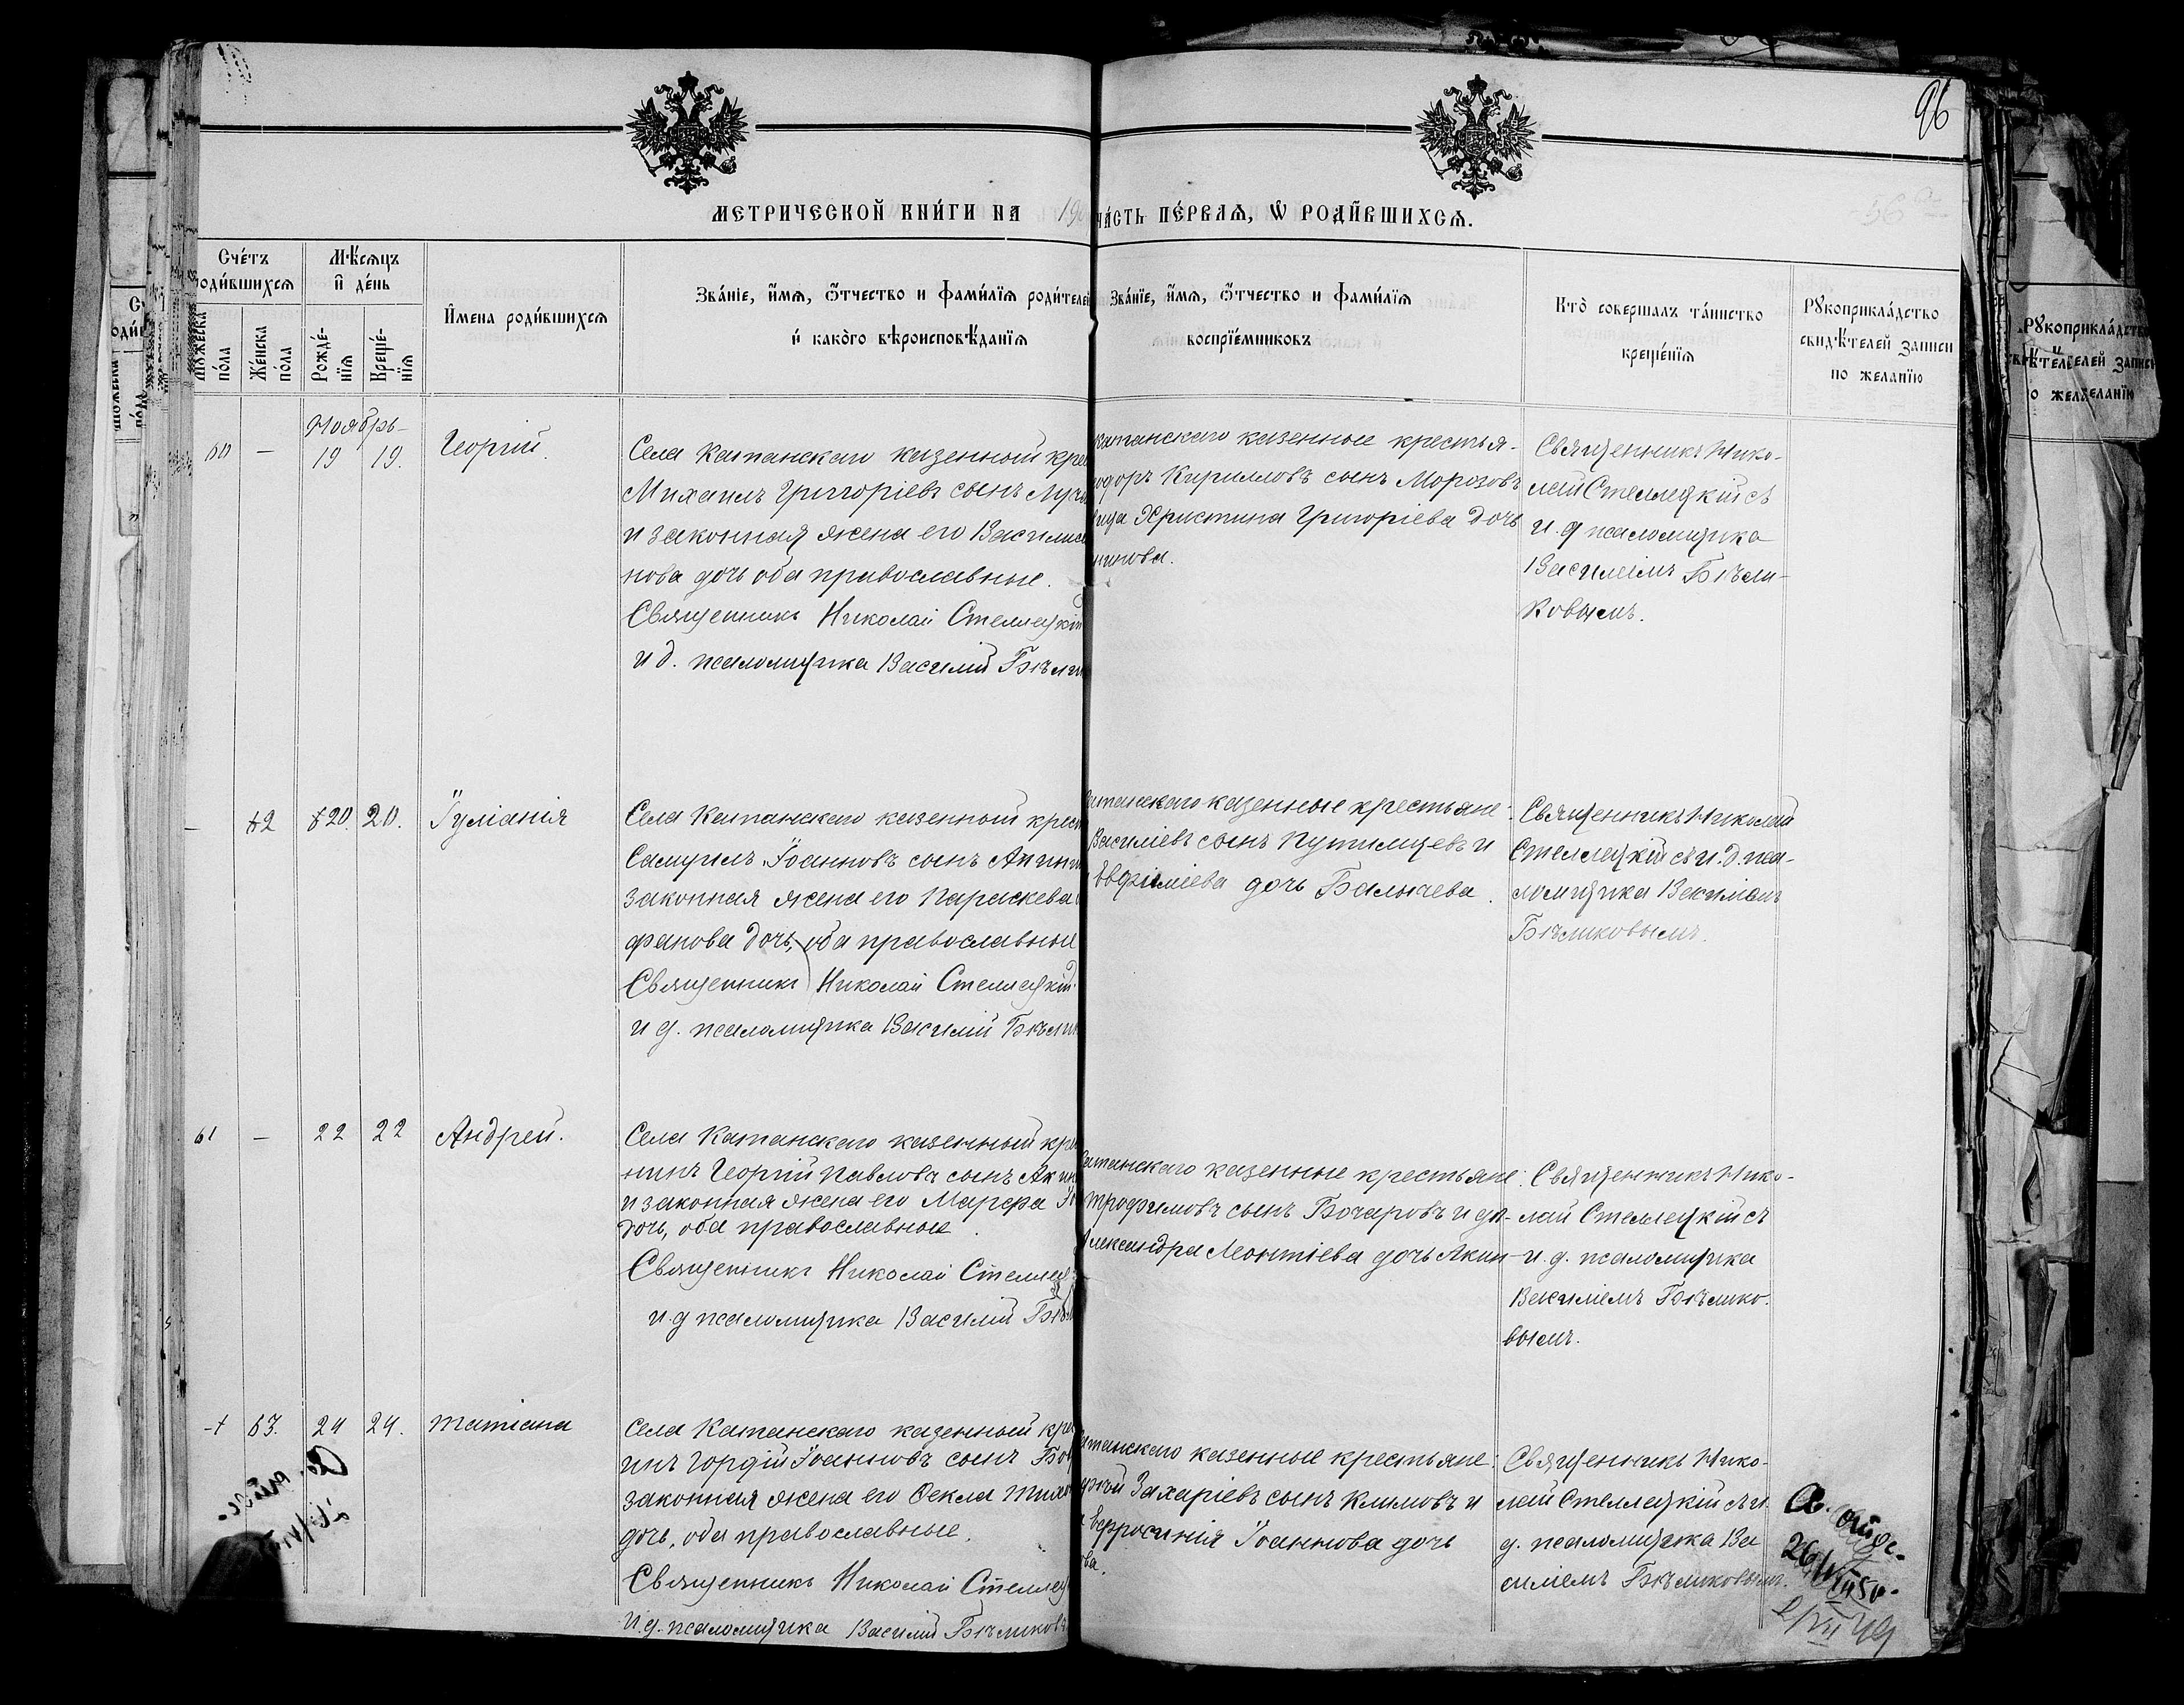 96
МЕТРИЧЕСКОЙ КНИ́ГИ НА 190
ЧА́СТЬ ПЕ́РВАѦ, Ѡ҆ РОДИ́ВШИХСѦ.
Сче́тъ
роди́вшихсѧ
Мѣ́сѧцъ
и҆ де́нь
Мꙋ́жеска
по́ла
Же́нска
по́ла
Рожде́-
нїѧ
Креще́-
нїѧ
И҆мена роди́вшихсѧ
Зва́нїе, и҆́мѧ, ѻ҆́тчество и фами́лїѧ роди́телей
и҆ како́гѡ вѣроисповѣ́данїѧ
Зва́нїе, и҆́мѧ, ѻ҆́тчество и фами́лїѧ
воспрїе́мниковъ
Кто̀ совершалъ та́инство
креще́нїѧ
Рꙋкоприкла́дство
свидѣ́телей записи
по желанїю
Ноябрь
60 — 19 19. Георгій.
Села Катанскаго казенный кре
Михаилъ Григоріевъ сынъ
и законная жена его Василис
нова дочь оба православные.
Священникъ Николай Стеллецкій
и д. псаломщика Василій Бѣли
катанскаго казенные крестья-
одоръ Кирилловъ сынъ Морозовъ
вица Христина Григоріева дочь
нинова.
Священникъ Нико-
лай Стеллецкій съ
и. д псаломщика
Василіемъ Бѣли-
ковымъ.
— 62 20. 20. Іуліанія
Села Катанскаго казенный крест
Самуилъ Іоанновъ сынъ Акин
законная жена его Параскева
фанова дочь, оба православные
Священникъ Николай Стеллецкій
и д. псаломщика Василій Бѣли
атанскаго казенные крестьяне:
Василіевъ сынъ Путилцевъ и
Евфиміева дочь
Священникъ Николай
Стеллецкій съ и. д. пса-
ломщика Василіемъ
Бѣликовымъ.
61 — 22 22 Андрей.
Села Катанскаго казенный кре
нинъ Георгій Павловъ сынъ Акин
и законная жена его Марѳа
дочь, оба православные.
Священникъ Николай Стеллец
и. д псаломщика Василій Бѣл
атанскаго казенные крестьяне:
Трофимовъ сынъ Бочаровъ и дѣ-
Александра Леонтіева дочь Акин
Священникъ Нико-
лай Стеллецкій съ
и. д. псаломщика
Василіемъ Бѣлико-
вымъ.
63. 24 24. Татіана
Села Катанскаго казенный кре
инъ Гордій Іоанновъ сынъ
законная жена его Ѳекла Тихо
дочь, оба православные.
Священникъ Николай Стеллец
и. д. псаломщика Василій Бѣликовъ
атанскаго казенные крестьяне:
Захаріевъ сынъ Климовъ и
Евфросинія Іоаннова дочь
ова.
Священникъ Нико-
лай Стеллецкій съ и.
д. псаломщика Ва
силіемъ Бѣликовымъ.